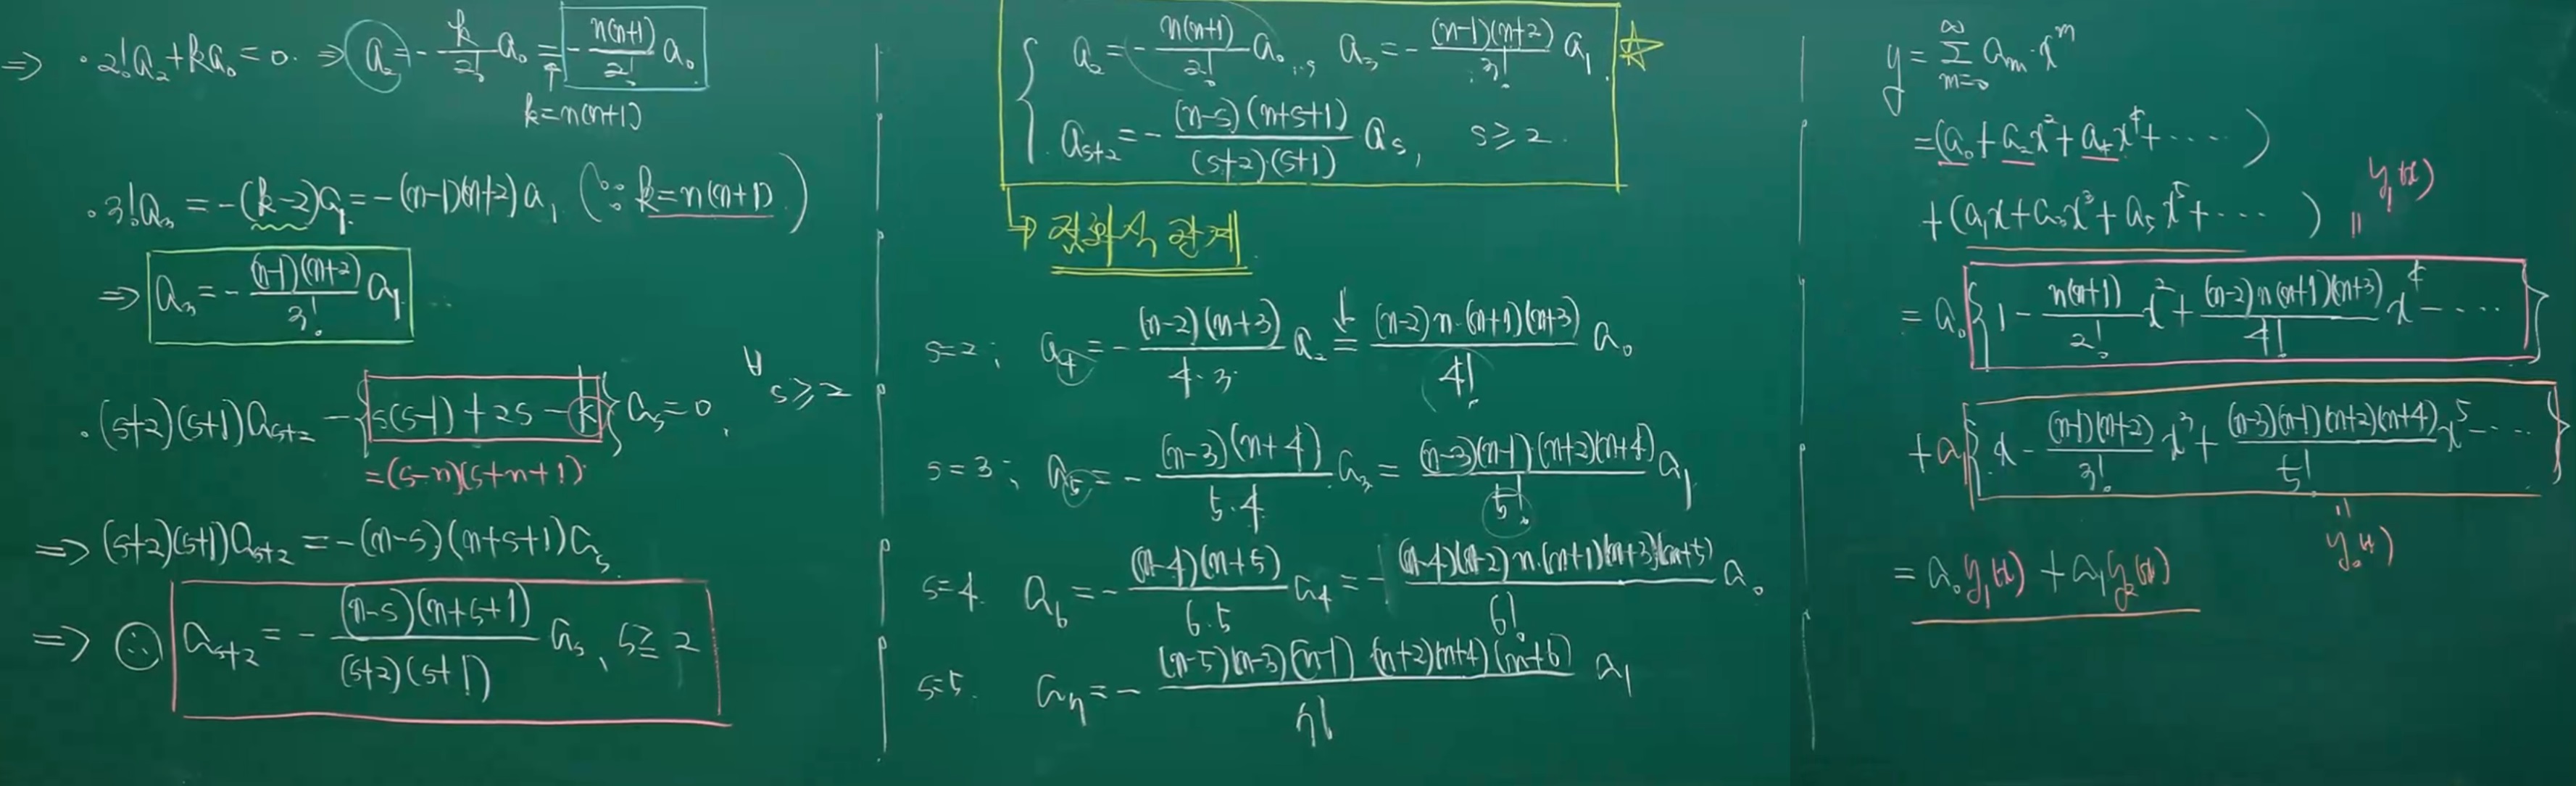 ⇒ · 2!a₂ + ka₀ = 0. ⇒ a₂ = - k/2! a₀ = - n(n+1)/2! a₀
↑ k=n(n+1)
· 3!a₃ = -(k-2)a₁ = -(n-1)(n+2)a₁ (∵ k=n(n+1))
⇒ a₃ = - (n-1)(n+2)/3! a₁
· (s+2)(s+1)aₛ₊₂ - {s(s-1)+2s-k}aₛ = 0, ∀ s≥2
=(s-n)(s+n+1)
⇒ (s+2)(s+1)aₛ₊₂ = -(n-s)(n+s+1)aₛ
⇒ ∴ aₛ₊₂ = - (n-s)(n+s+1)/(s+2)(s+1) aₛ, s≥2
a₂ = - n(n+1)/2! a₀, a₃ = - (n-1)(n+2)/3! a₁ ☆
aₛ₊₂ = - (n-s)(n+s+1)/(s+2)·(s+1) aₛ, s≥2
→ 점화식 관계
s=2; a₄ = - (n-2)(n+3)/4·3 a₂ = (n-2)n·(n+1)(n+3)/4! a₀
s=3; a₅ = - (n-3)(n+4)/5·4 a₃ = (n-3)(n-1)·(n+2)(n+4)/5! a₁
s=4. a₆ = - (n-4)(n+5)/6·5 a₄ = - (n-4)(n-2)n·(n+1)(n+3)(n+5)/6! a₀
s=5. a₇ = - (n-5)(n-3)(n-1)(n+2)(n+4)(n+6)/7! a₁
y = ∑_{m=0}^{∞} aₘ·xᵐ
= (a₀+a₂x²+a₄x⁴+ ···· )
+ (a₁x+a₃x³+a₅x⁵+ ···· ) = y₁(x)
= a₀{1 - n(n+1)/2! x² + (n-2)n(n+1)(n+3)/4! x⁴ - ····}
+ a₁{x - (n-1)(n+2)/3! x³ + (n-3)(n-1)(n+2)(n+4)/5! x⁵ - ····}
= y₂(x)
= a₀y₁(x) + a₁y₂(x)